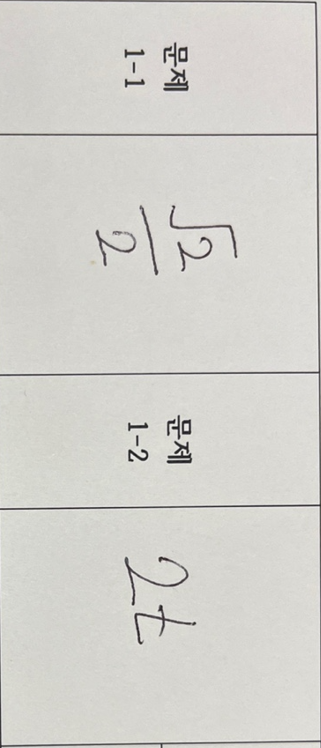 문제
1-1
√2/2
문제
1-2
2t